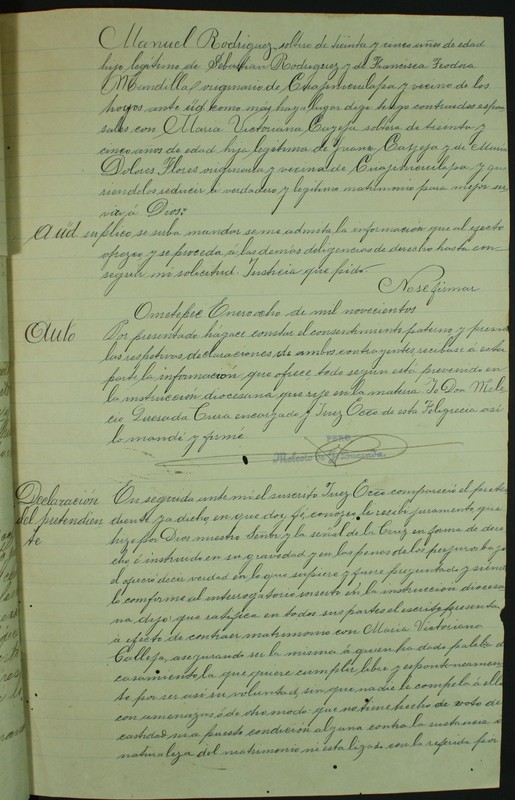 Manuel Rodriguez, soltero de treinta y cinco años de edad
hijo legítimo de Sebastian Rodriguez y de Francisca Teodora
originario de Cuajinicuilapa y vecino de los
hoyos ante Ud. como más haya lugar digo: tengo contraidos espon
sales con Maria Victoriana Calleja soltera de treinta y
cinco años de edad hija legítima de Juan Calleja y de Maria
Dolores Flores originaria y vecina de Cuajinicuilapa y que
riendolos reducir á verdadero y legítimo matrimonio para mejor ser
vir á Dios:
A Ud. suplico, se sirva mandar se me admita la informacion que al efecto
ofrezco y se proceda á las demás diligencias de derecho hasta con
seguir mi solicitud. Justicia que pido.
No sé firmar
Ometepec Enero ocho de mil novecientos
Auto
Por presentado hágace constar el consentimiento paterno y previa
las respetivas declaraciones de ambos contrayentes, recibase á esta
parte la información que ofrece todo segun está prevenido en
la instruccion diocesana que rije en la materia. Yo Don Mo
Quesada Cura encargado y Juez Ecco de esta Feligrecia así
lo mandé y firmé.
PBRO.
Modesto Quesada.
Declaración
del pretendien
te
En seguida ante mi el suscrito Juez Ecco compareció el preten
diente ya dicho, en que doy fé, conozco, le recibi juramento que
hizo por Dios nuestro Señor y la señal de la Cruz en forma de dere
cho é instruido en su gravedad y en las penas de los perjuros bajo
el ofreció decir verdad en lo que supiere y fuere preguntado y siendo
lo comforme al interrogatorio inserto en la instruccion diocesa
na dijo: que ratifica en todas sus partes el escrito presenta
á efecto de contraer matrimonio con Maria Victoriana
Calleja, asegurando ser la misma á quien ha dado palabra de
casamiento la que quiere cumplir libre y espontaneamen
te por ser así su voluntad, sin que nadie le compela á ello
con amenazas ó de otro modo que no tiene hecho de voto de
castidad ni á puesto condición alguna contra la sustancia ó
naturaleza del matrimonio ni esta ligado con la referida por